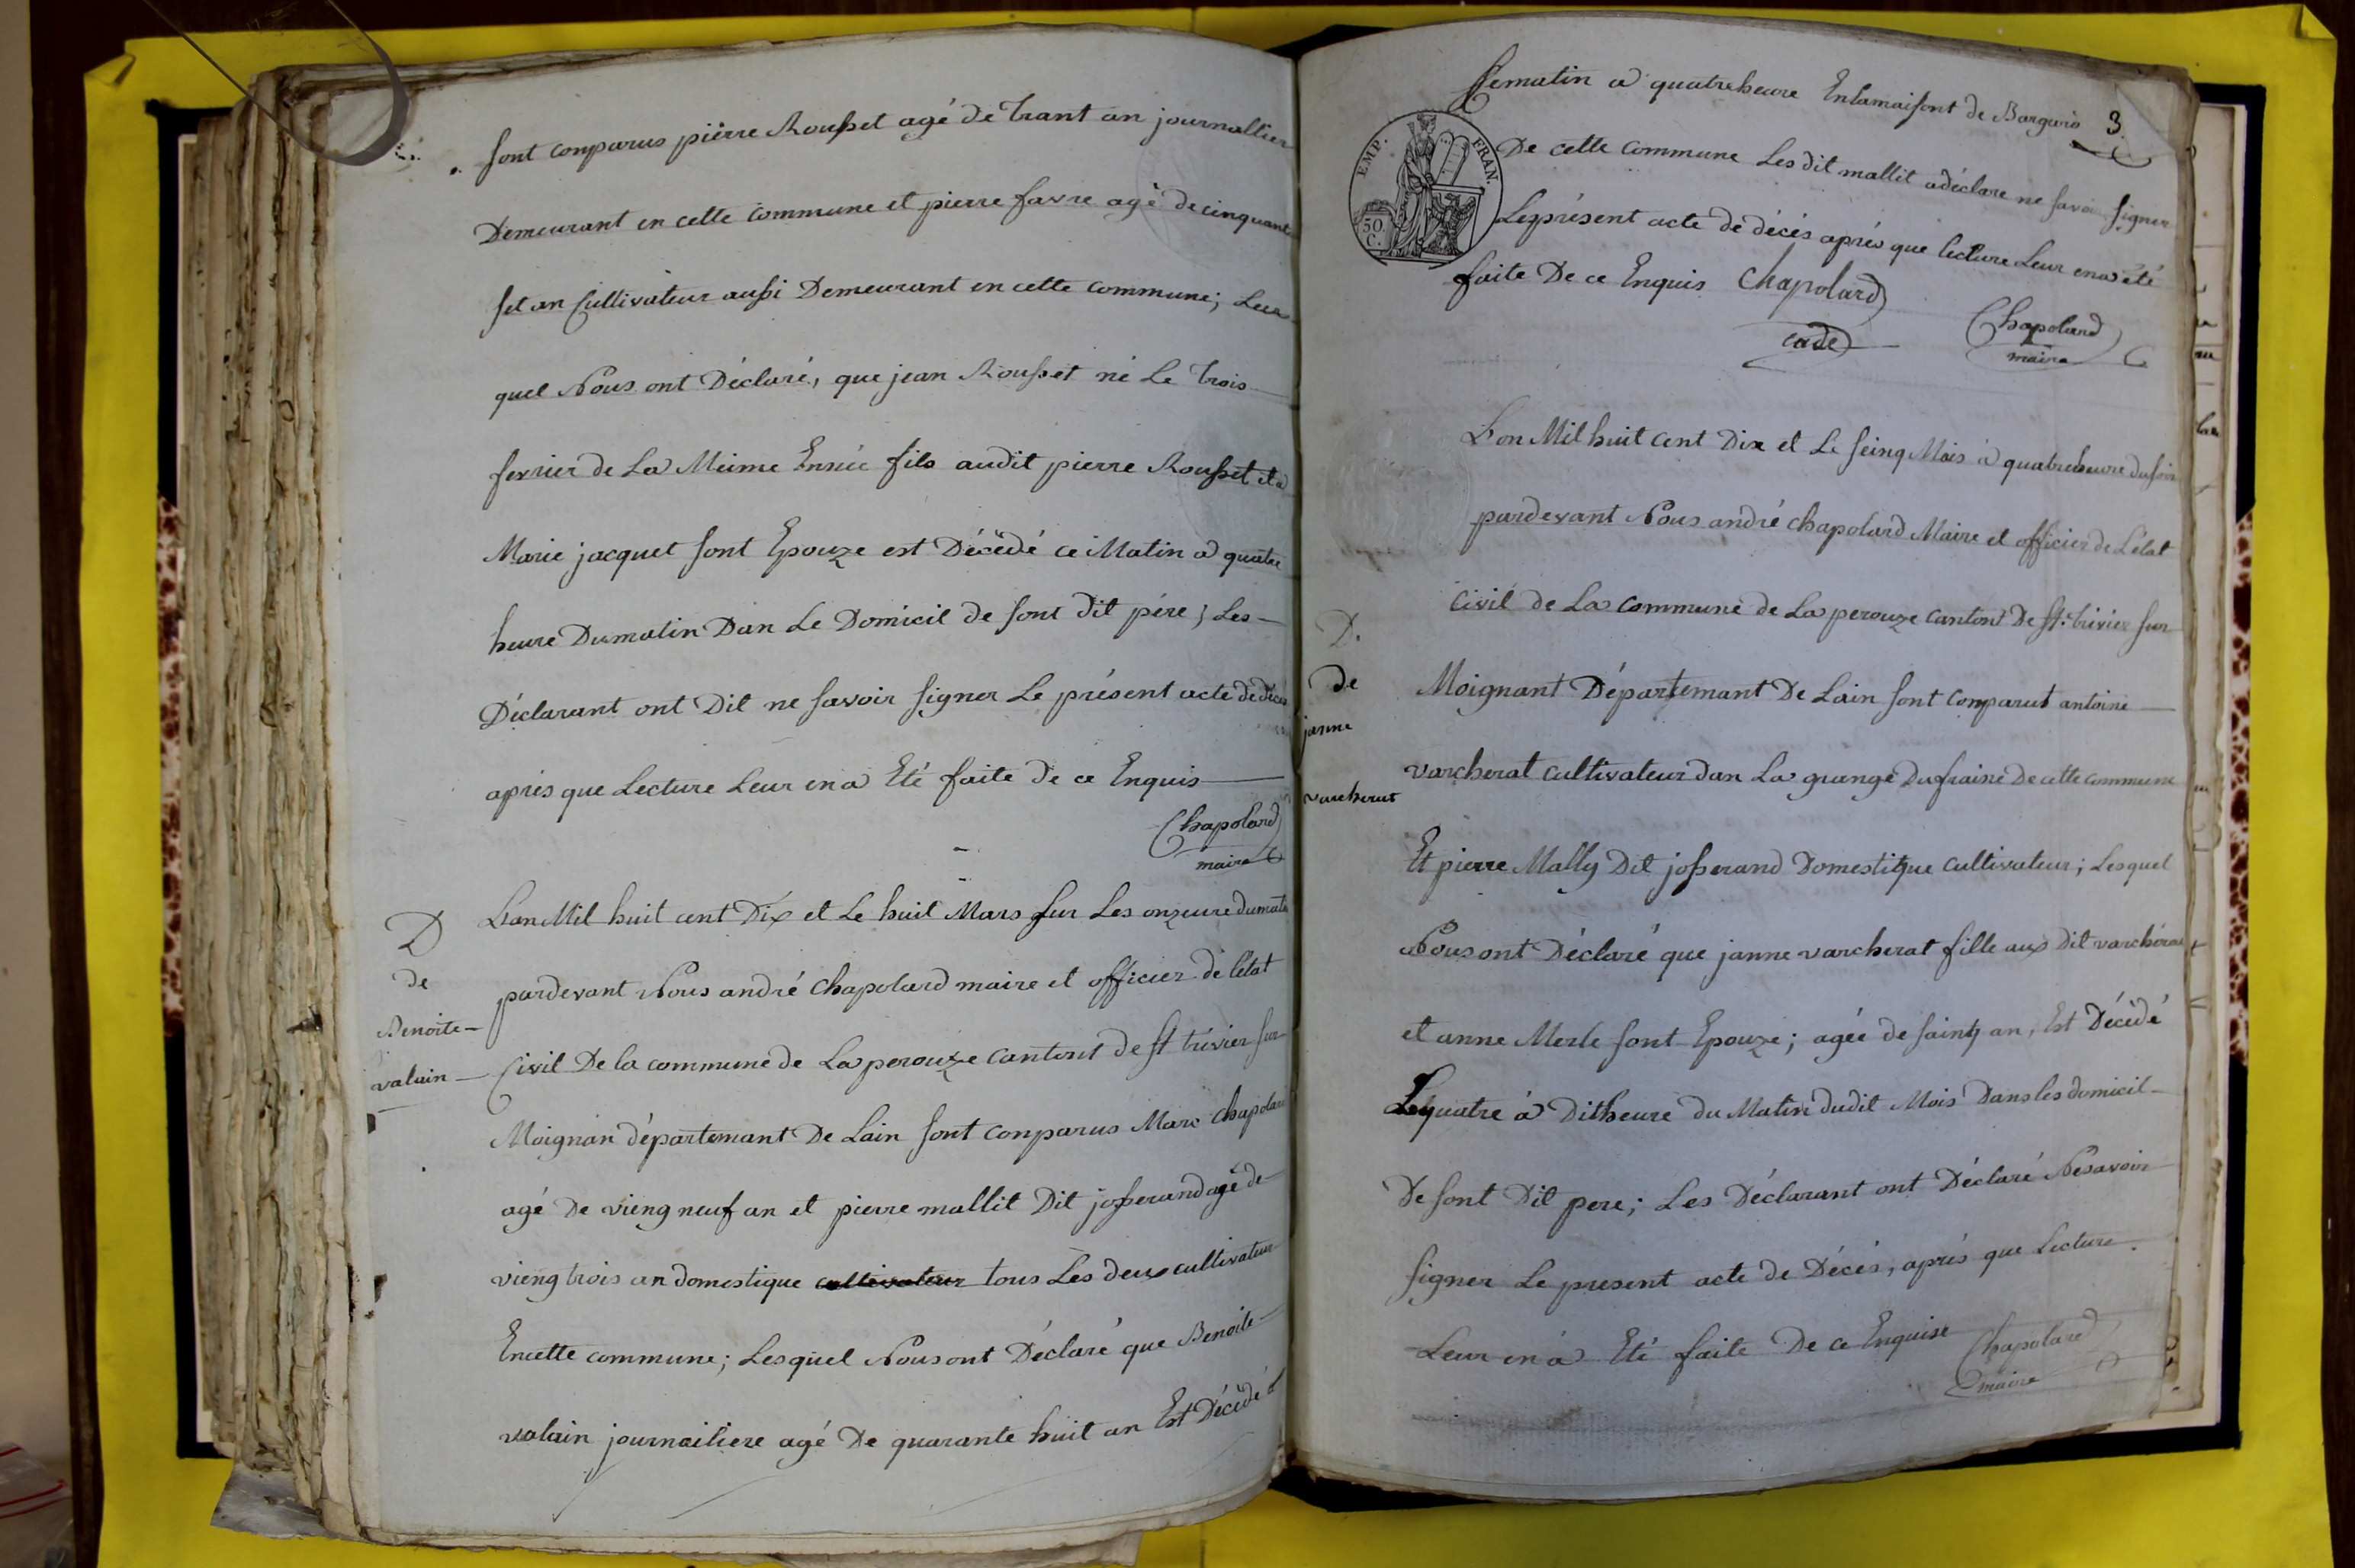 sont conparus pièrre Rousset agé de trant an journallier
Demeurant en cette commune et pierre favre agé de cinquante
set an Cultivateur aussi Demeurant en cette commune; Les
quel Nous ont Déclaré, que jean Rousset né Le trois
fevrier de La Meime Ennéé fils audit pierre Rousset et à
Marie jacquet sont Epouze est Décédé ce Matin a quatre
heure Dumatin Dan Le Domicil de sont dit père; Les
Déclarant ont Dit ne savoir signer Le présent acte de déces
après que Lecture Leur en a Eté faite de ce Enquis
Chapolard
maire
D
de
Benoite
valain
Lan Mil huit cent Dix et Le huit Mars sur Les onzeure dumatin
pardevant Nous andré Chapolard maire et officier de létat
Civil De la commune de La perouze cantont de st trivier sur
Moignan département De Lain sont conparus Marc Chapolard
agé De vieng neuf an et pierre mallit Dit josserand agé de
vieng trois an domestique cultivateur tous Les deux cultivateur
En cette commune; Lesquel Nous ont Déclaré que Benoite
valain journailiere agé De quarante huit an Est Décédé à
3
Cematin a quatreheure Enlamaisont de Barguis
EMP. FRAN.
50 C.
De cette commune Les dit mallit a déclare ne savoir signer
Le présent acte de décès après que lecture Leur en a été
faite De ce Enquis Chapolard
cade
Chapolard
maire
D.
de
janne
varcherat
Lan Mil huit cent Dix et Le seinq Mois à quatreheure du soir
pardevant Nous andré chapolard Maire et officier de L'état
Civil de La commune de La perouze cantont De st. trivier sur
Moignant Départemant De Lain sont comparut antoine
varcherat cultivateur dan La grange Dufraine De cette commune
Et pierre Mally Dit josserand Domestique cultivateur; Lesquel
Nous ont Déclaré que janne varcherat fille aux Dit varchérat
et anne Merle sont Epouze; agée de sainq an, Est Décédé
Lequatre à Ditheure du Matin dudit Mois Dans les domicil
De sont Dit pere; Les Déclarant ont Déclaré Nesavoir
signer Le present acte de Décès, après que Lecture
Leur en à Eté faite De ce Enquise Chapolard
maire